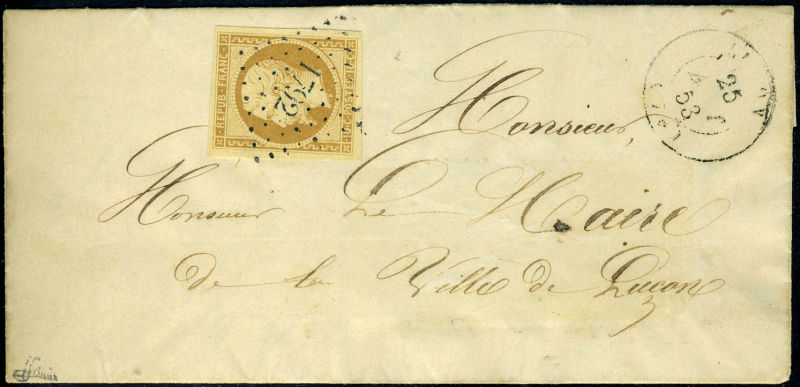 REPUB. FRANC.
1752
25
53
Monsieur,
Monsieur Le Maire
de la Ville de Luçon